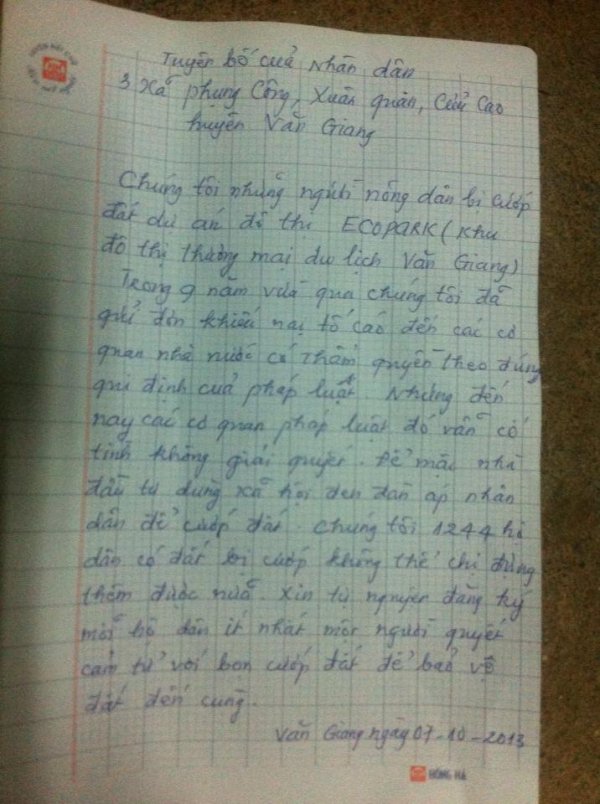 Tuyên bố của Nhân dân
3 Xã phụng Công, Xuân quan, Cửu Cao
huyện Văn Giang
Chúng tôi những người nông dân bị cướp
đất dự án đô thị ECOPARK (Khu
đô thị thương mại du lịch Văn Giang)
Trong 9 năm vừa qua chúng tôi đã
gửi đơn khiếu nại tố cáo đến các cơ
quan nhà nước có thẩm quyền theo đúng
qui định của pháp luật. Nhưng đến
nay các cơ quan pháp luật đó vẫn cố
tình không giải quyết. Để mặc nhà
đầu tư dùng xã hội đen đàn áp nhân
dân để cướp đất. Chúng tôi 1244 hộ
dân có đất bị cướp không thể chịu đựng
thêm được nữa. Xin tự nguyện đăng ký
mỗi hộ dân ít nhất một người quyết
cảm tử với bọn cướp đất để bảo vệ
đất đến cùng.
Văn Giang ngày 07-10-2013
HỒNG HÀ